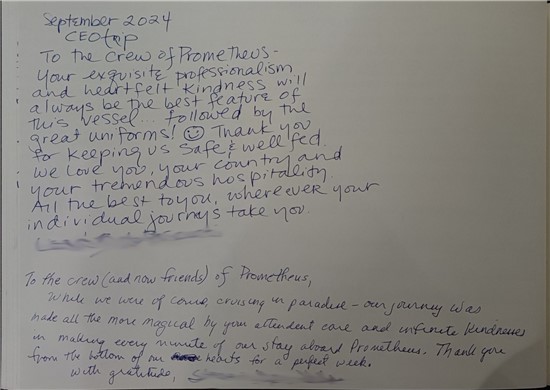 September 2024
CEO trip
To the crew of Prometheus-
Your exquisite professionalism
and heartfelt kindness will
always be the best feature of
this vessel... followed by the
great uniforms! ☺ Thank you
for keeping us safe & well fed.
We love you, your country and
your tremendous hospitality.
All the best to you, whereever your
individual journeys take you.
To the crew (and now friends) of Prometheus,
While we were of course, cruising in paradise - our journey was
made all the more magical by your attendent care and infinite kindnesses
in making every minute of our stay aboard Prometheus. Thank you
from the bottom of our hearts for a perfect week.
With gratitude,